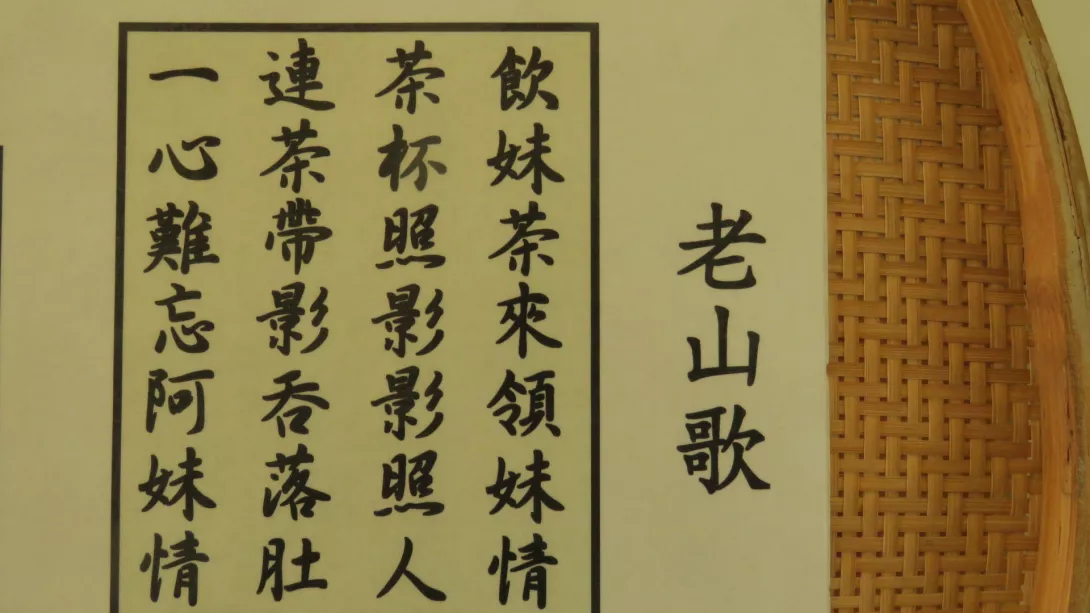 老山歌
飲妹茶來領妹情
茶杯照影影照人
連茶帶影吞落肚
一心難忘阿妹情